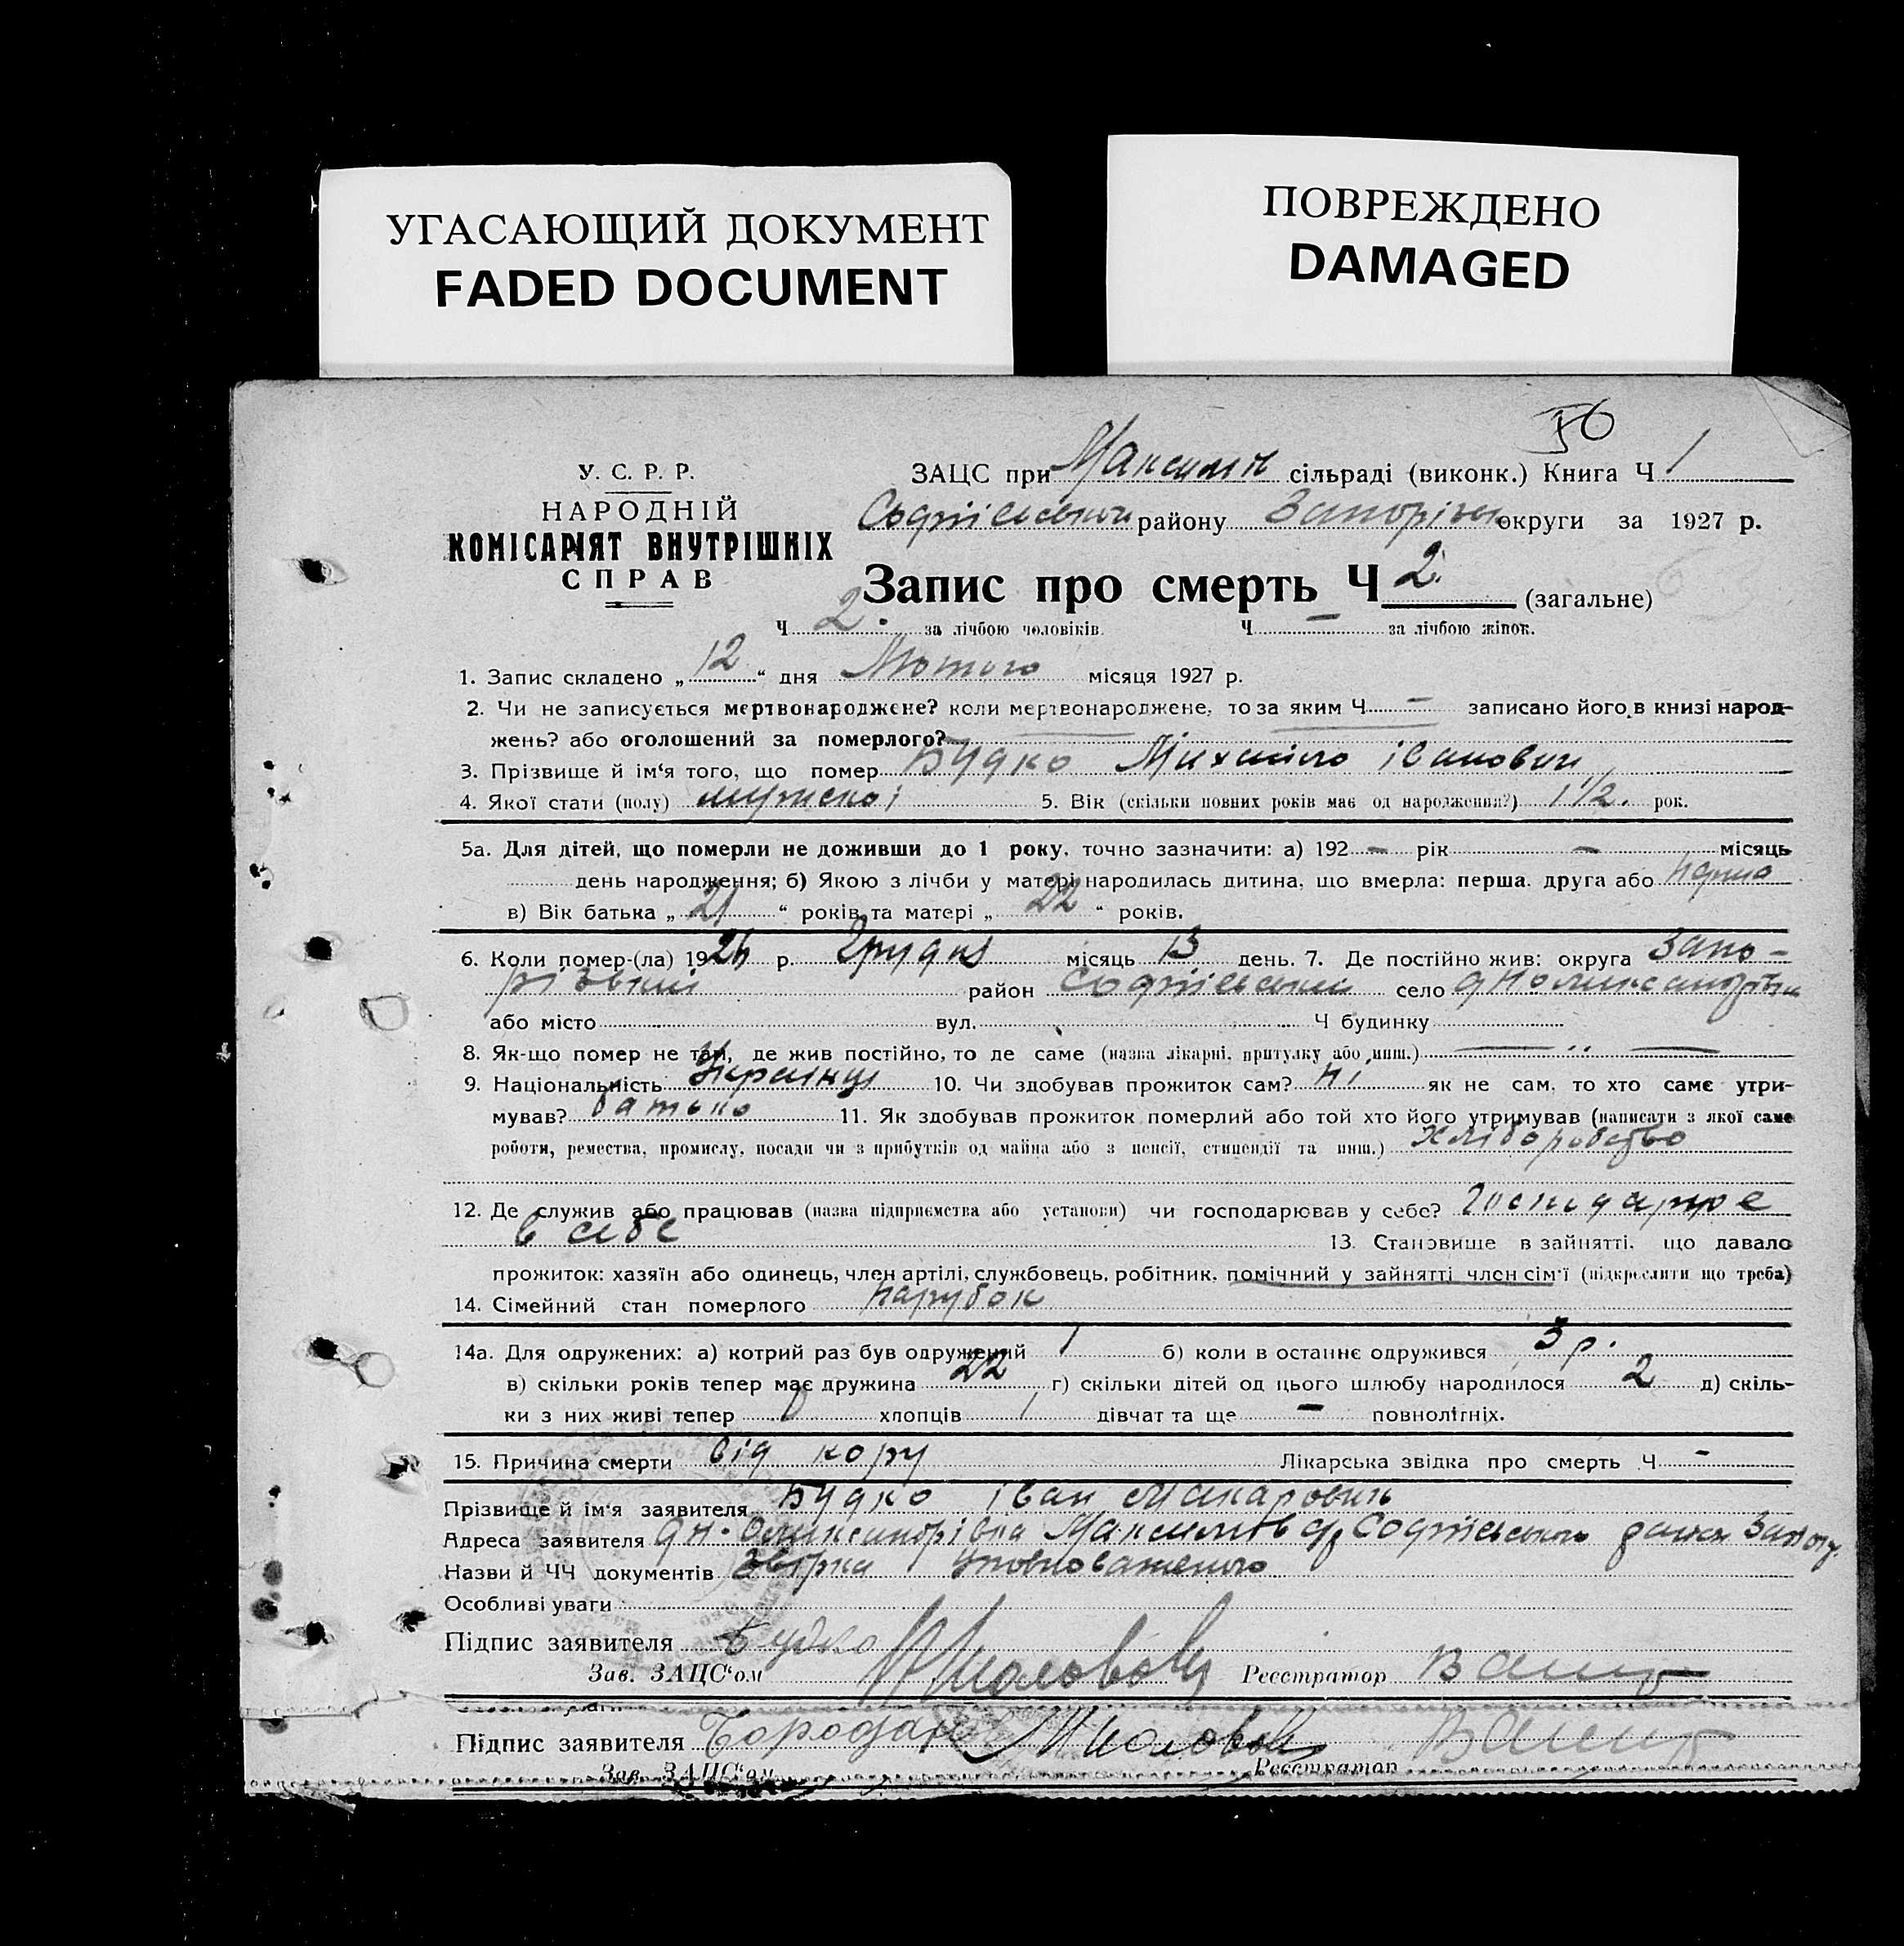 УГАСАЮЩИЙ ДОКУМЕНТ
FADED DOCUMENT
ПОВРЕЖДЕНО
DAMAGED
У. С. Р. Р.
НАРОДНІЙ
КОМІСАРІЯТ ВНУТРІШНІХ
СПРАВ
ЗАЦС при сільраді (виконк.) Книга Ч 1
району округи за 1927 р.
Запис про смерть Ч 2. (загальне)
Ч 2. за лічбою чоловіків. Ч — за лічбою жінок.
1. Запис складено „ 12 “ дня Лютого місяця 1927 р.
2. Чи не записується мертвонароджене? коли мертвонароджене, то за яким Ч — записано його в книзі народ-
жень? або оголошений за померлого?
3. Прізвище й ім‘я того, що помер Будко Михайло іванович
4. Якої стати (полу) мужскої 5. Вік (скільки повних років має од народження?) 1 1/2. рок.
5а. Для дітей, що померли не доживши до 1 року, точно зазначити: а) 192 — рік — місяць
день народження; б) Якою з лічби у матері народилась дитина, що вмерла: перша. друга або
в) Вік батька „ 21 “ років та матері „ 22 “ років.
6. Коли помер-(ла) 1926 р. Грудня місяць 13 день. 7. Де постійно жив: округа Запо-
різький район Софіївський село
або місто вул. Ч будинку
8. Як-що помер не там, де жив постійно, то де саме (назва лікарні, притулку або инш.) — „ —
9. Національність 10. Чи здобував прожиток сам? ні як не сам, то хто саме утри-
мував? батько 11. Як здобував прожиток померлий або той хто його утримував (написати з якої саме
роботи, ремества, промислу, посади чи з прибутків од майна або з пенсії, стипендії та инш.) хліборобство
12. Де служив або працював (назва підприємства або установи) чи господарював у себе? Господарює
в себе 13. Становище в зайнятті, що давало
прожиток: хазяїн або одинець, член артілі, службовець, робітник, помічний у зайнятті член сім‘ї (підкреслити що треба)
14. Сімейний стан померлого парубок
14а. Для одружених: а) котрий раз був одружений 1 б) коли в останнє одружився 3 р.
в) скільки років тепер має дружина 22 г) скільки дітей од цього шлюбу народилося 2 д) скіль-
ки з них живі тепер хлопців 1 дівчат та ще — повнолітніх.
15. Причина смерти від кору Лікарська звідка про смерть Ч -
Прізвище й ім‘я заявителя Будко іван Макарович
Адреса заявителя
Назви й ЧЧ документів
Особливі уваги
Підпис заявителя Будко
Зав. ЗАЦС‘ом Реєстратор
Підпис заявителя
Зав. ЗАЦС‘ом Реєстратор